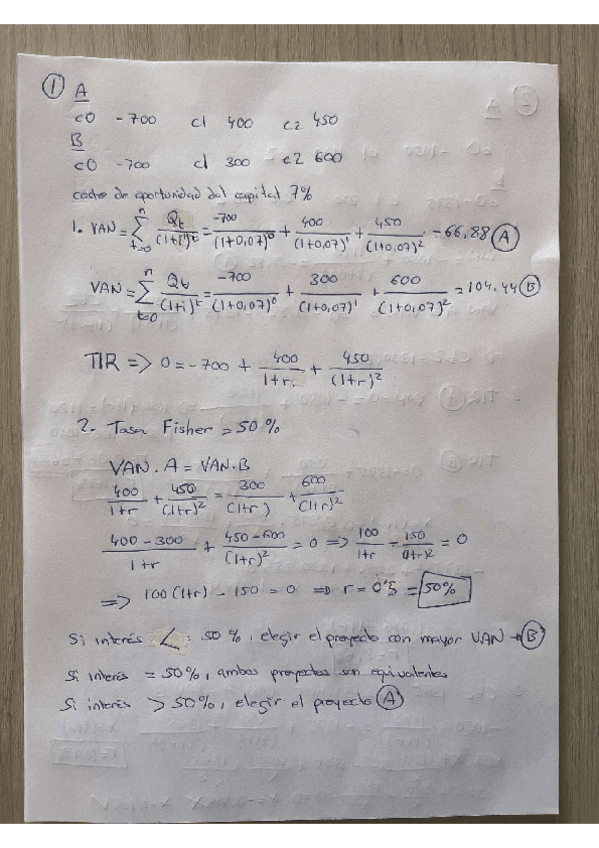 1 A
c0 -700 c1 400 c2 450
B
c0 -700 c1 300 c2 600
coste de oportunidad del capital 7%
1. VAN = \sum_{t=0}^{n} \frac{Qt}{(1+i)^t} = \frac{-700}{(1+0,07)^0} + \frac{400}{(1+0,07)^1} + \frac{450}{(1+0,07)^2} = 66,88 A
VAN = \sum_{t=0}^{n} \frac{Qt}{(1+i)^t} = \frac{-700}{(1+0,07)^0} + \frac{300}{(1+0,07)^1} + \frac{600}{(1+0,07)^2} = 104.44 B
TIR => 0 = -700 + \frac{400}{1+r} + \frac{450}{(1+r)^2}
2. Tasa Fisher = 50%
VAN.A = VAN.B
\frac{400}{1+r} + \frac{450}{(1+r)^2} = \frac{300}{(1+r)} + \frac{600}{(1+r)^2}
\frac{400-300}{1+r} + \frac{450-600}{(1+r)^2} = 0 => \frac{100}{1+r} - \frac{150}{(1+r)^2} = 0
=> 100(1+r) - 150 = 0 => r = 0'5 = 50%
Si interés < 50%, elegir el proyecto con mayor VAN → B
Si interés = 50%, ambos proyectos son equivalentes
Si interés > 50%, elegir el proyecto A